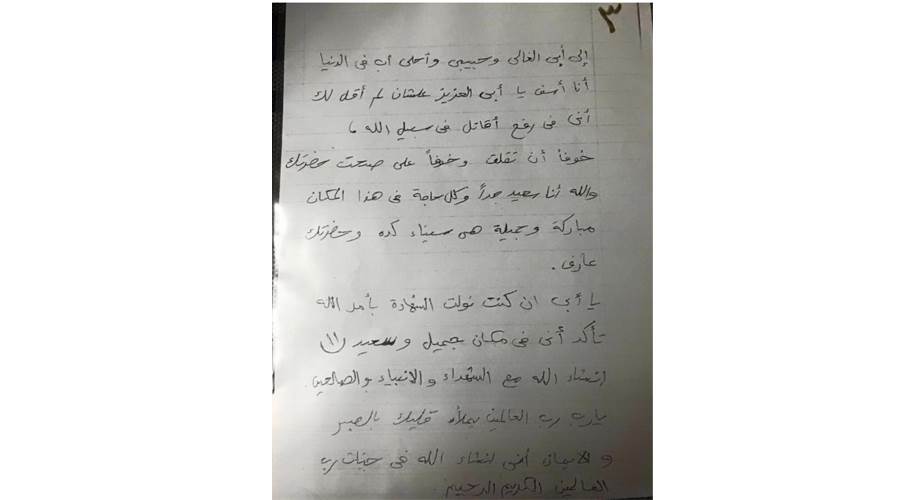 ٣
إلى أبى الغالى وحبيبى وأحلى أب فى الدنيا
أنا أسف يا أبى العزيز علشان لم أقل لك
أنى فى رفح أقاتل فى سبيل الله
خوفاً أن تقلق وخوفاً على صحت حضرتك
والله أنا سعيد جداً وكل حاجة فى هذا المكان
مباركة وجميلة هى سيناء كده وحضرتك
عارف.
يا أبى ان كنت نولت الشهادة بأمر الله
تأكد أنى فى مكان جميل وسعيد (١١)
إنشاء الله مع الشهداء والانبياء والصالحين
يارب رب العالمين يملأه قلبك بالصبر
والايمان أنى إنشاء الله فى جنات رب
العالمين الكريم الرحيم.